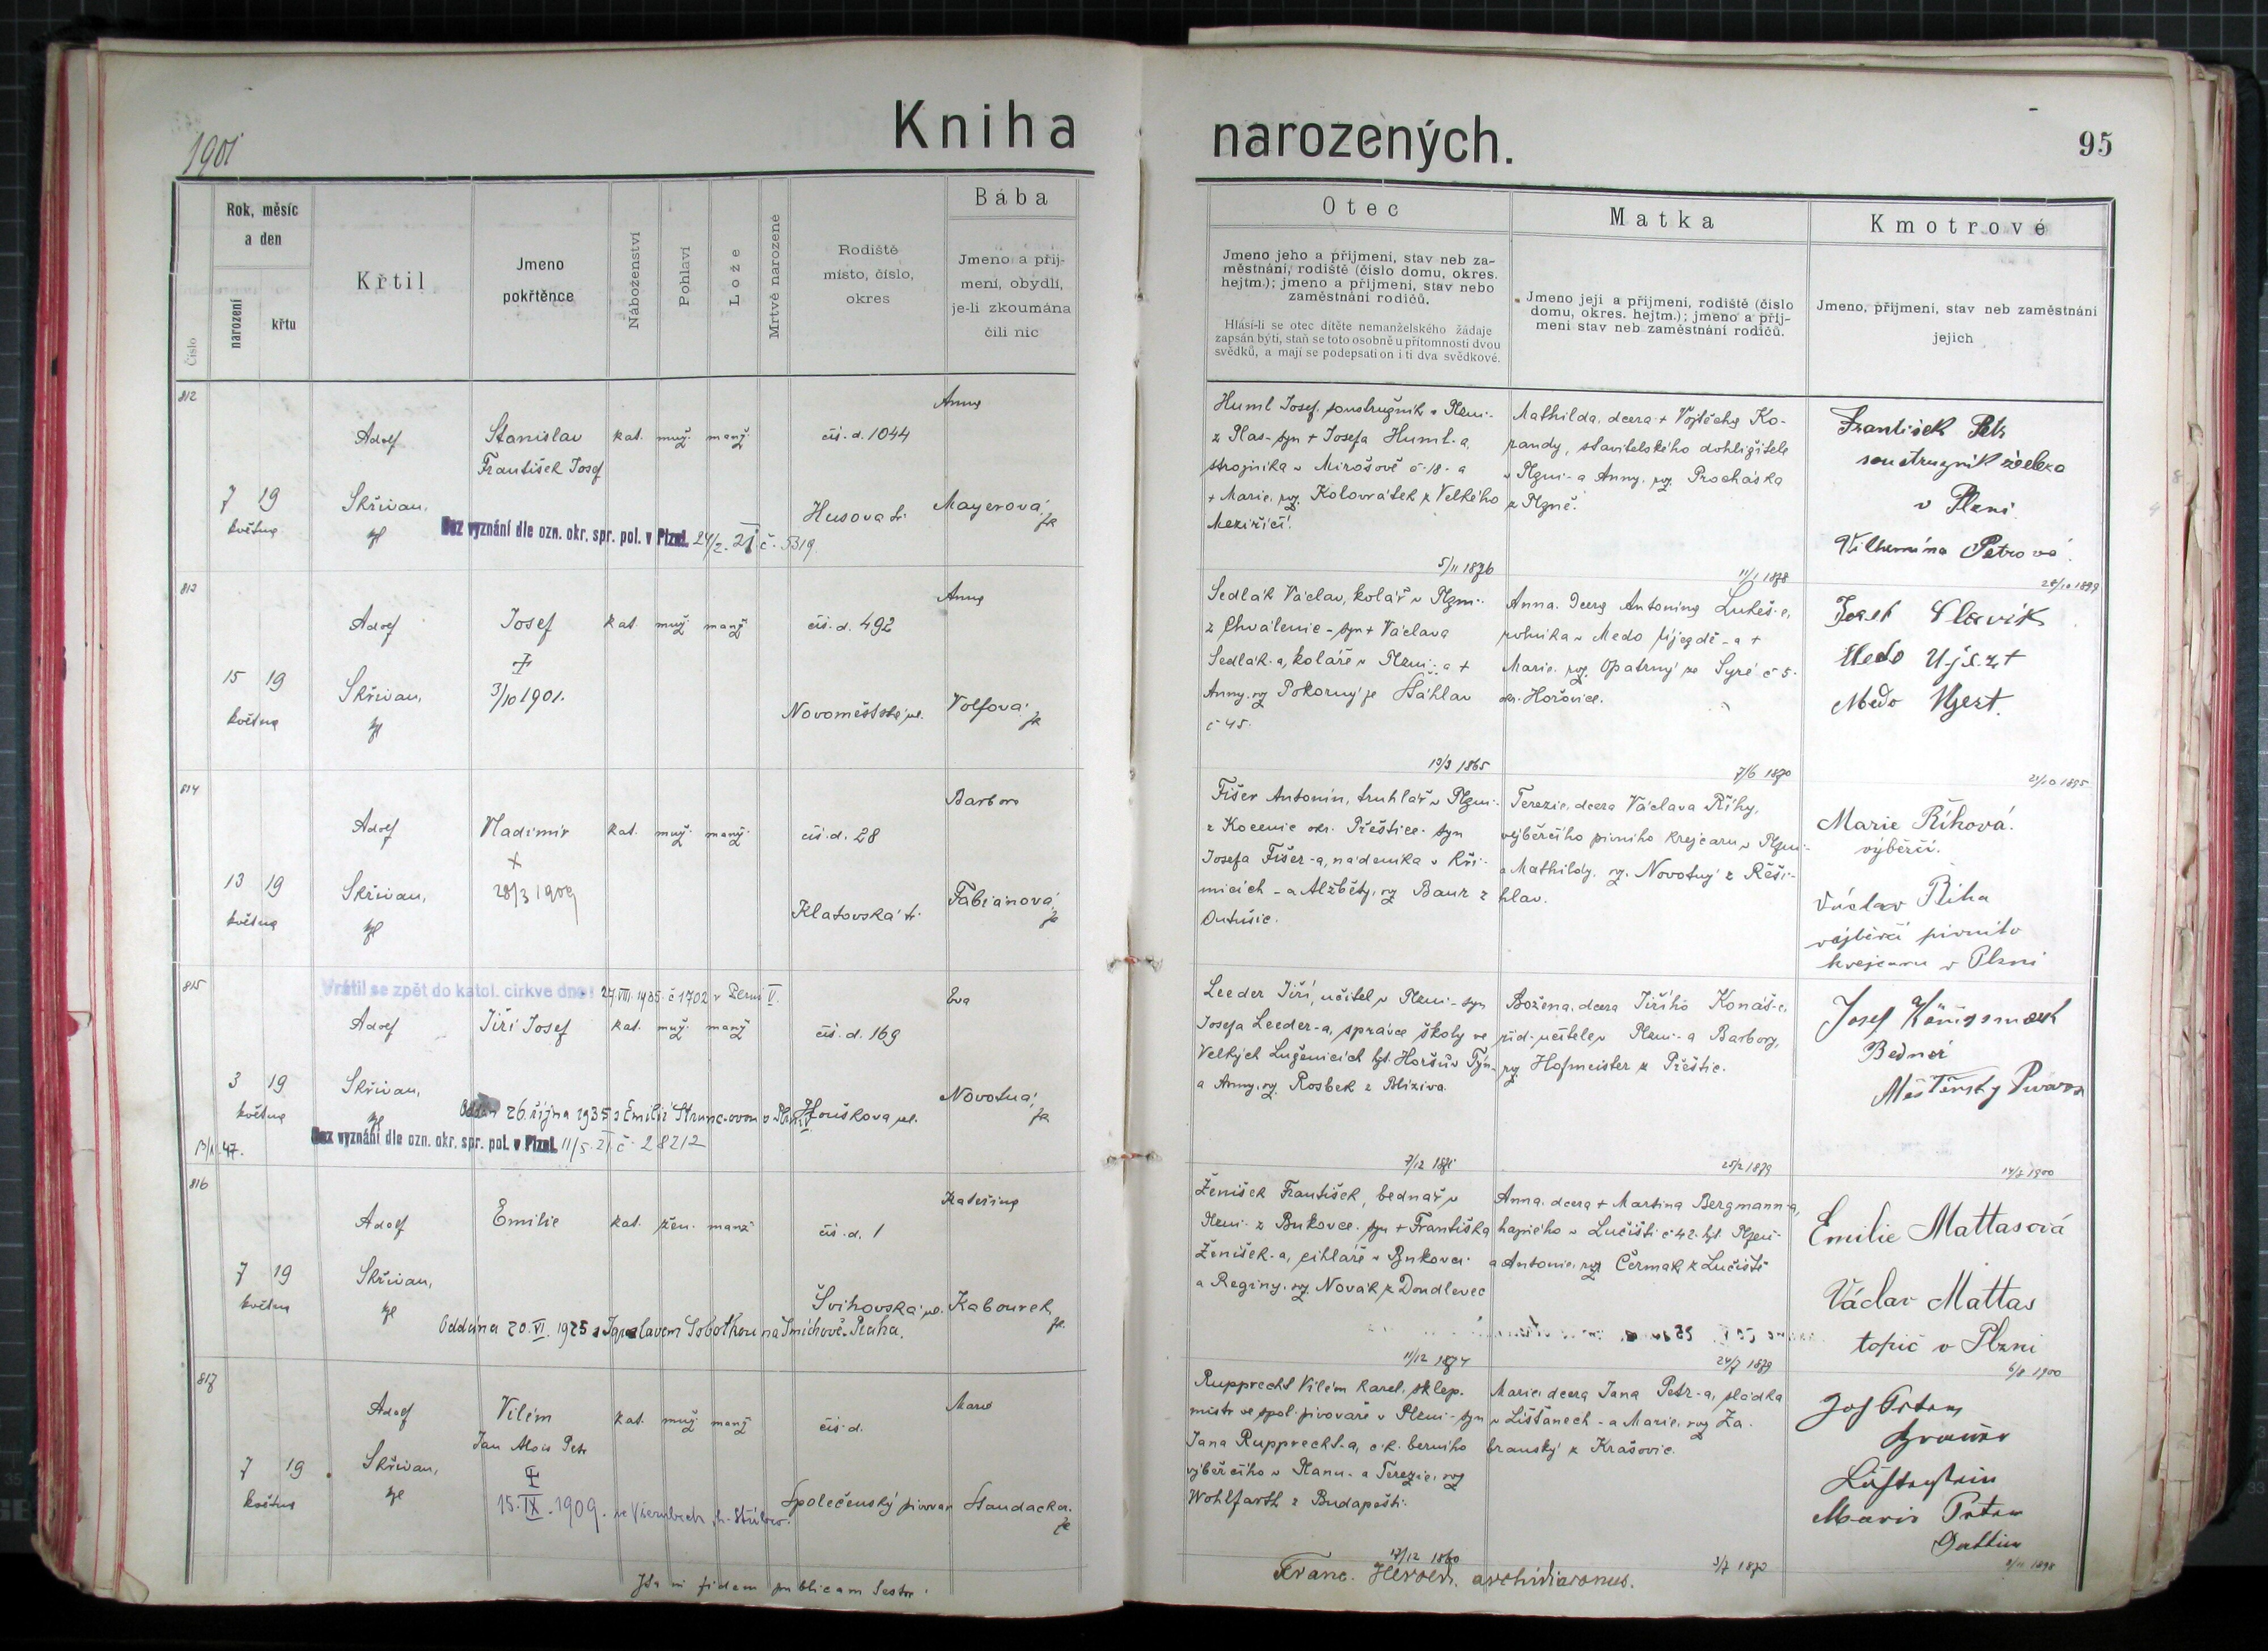 1901
Kniha narozených.
95
Číslo
Rok, měsíc
a den
narození
křtu
Křtil
Jmeno
pokřtěnce
Náboženství
Pohlaví
Lože
Mrtvě narozené
Rodiště
místo, číslo,
okres
Bába
Jmeno a příj-
mení, obydlí,
je-li zkoumána
čili nic
Otec
Jmeno jeho a příjmení, stav neb za-
městnání, rodiště (číslo domu, okres.
hejtm.); jmeno a příjmení, stav nebo
zaměstnání rodičů.
Hlásí-li se otec dítěte nemanželského žádaje
zapsán býti, staň se toto osobně u přítomnosti dvou
svědků, a mají se podepsati on i ti dva svědkové.
Matka
Jmeno její a příjmení, rodiště (číslo
domu, okres. hejtm.); jmeno a příj-
mení stav neb zaměstnání rodičů.
Kmotrové
Jmeno, příjmení, stav neb zaměstnání
jejich
812
7 19
května
Adolf
Skřivan,
Stanislav
František Josef
kat. muž. manž.
čís. d. 1044
Husova tř.
Anna
Mayerová
Bez vyznání dle ozn. okr. spr. pol. v Plzni 24/2. 21 č. 5319
Huml Josef, soustružník v Plzni-
z Plas- syn + Josefa Huml-a,
strojníka v Mirošově č. 18. a
+ Marie, roz. Kolovrátek z Velkého
Meziříčí.
5/11 1876
Mathilda, dcera + Vojtěcha Ko-
randy, stavitelského dohlížitele
v Plzni- a Anny, roz. Procháska
z Plzně.
11/1 1878
František Petr
soustružník železa
v Plzni
Vilhemína Petrová
28/10 1899
813
15 19
května
Adolf
Skřivan,
Josef
3/10 1901.
kat. muž. manž
čís. d. 492
Novoměstská ul.
Anna
Volfová
Sedlák Václav, kolář v Plzni-
z Chválenic - syn + Václava
Sedlák-a, koláře v Plzni- a +
Anny, roz Pokorný ze Šťáhlav
č 45.
19/3 1865
Anna, dcera Antonína Lukeš-e,
rolníka v Medo Újezdě - a +
Marie, roz. Opatrný ze Syré č 5.
okr. Hořovice.
7/6 1870
Josef Slavík
Medo Ujezt
Medo Ujezt.
814
13 19
května
Adolf
Skřivan,
Vladimír
+
28/3 1909
kat. muž. manž.
čís. d. 28
Klatovská tř.
Barbora
Fabiánová
Fišer Antonín, truhlář v Plzni-
z Kocenic okr. Přeštice- syn
Josefa Fišer-a, nádeníka v Kři-
micích - a Alžběty, roz Baur z
Outušic.
7/12 1871
Terezie, dcera Václava Říhy,
výběrčího pivního krejcaru v Plzni-
a Mathildy, roz. Novotný z Řeši-
hlav.
Marie Říhová.
výběrčí.
Václav Říha
výběrčí pivního
krejcaru v Plzni
815
3 19
května
Vrátil se zpět do katol. církve dne: 27 VIII. 1935. č 1702 v Plzni V.
Adolf
Skřivan,
Jiří Josef
kat. muž. manž
čís. d. 169
Houškova ul.
Eva
Novotná,
Oddán 26. října 1935 s Emilií Strunc-ovou v Plzni
Bez vyznání dle ozn. okr. spr. pol. v Plzni 11/5. 21 č. 28212
Leeder Jiří, učitel v Plzni - syn
Josefa Leeder-a, správce školy ve
Velkých Luženicích hjt. Horšův Týn-
a Anny, roz. Rosbek z Bliziva.
Božena, dcera Jiřího Konáš-e,
říd. učitele v Plzni- a Barbory,
roz Hofmeister z Přeštic.
25/2 1879
Josef Königsmark
Bednář
Měšťanský Pivovar
14/7 1900
816
7 19
května
Adolf
Skřivan,
Emilie
kat. žen. manž
čís. d. 1
Švihovská ul.
Kateřina
Kabourek,
Oddána 20. VI. 1925 s Jaroslavem Sobotkou na Smíchově-Praha.
Ženíšek František, bednář v
Plzni- z Bukovce. syn + Františka
Ženíšek-a, cihláře v Bukovci
a Reginy, roz. Novák z Doudlevec
11/12 1874
Anna, dcera + Martina Bergmann-a,
hajného v Lučišti č 42. hjt. Plzeň-
a Antonie, roz Čermák z Lučiště
24/7 1879
Emilie Mattasová
Václav Mattas
topič v Plzni
6/8 1900
817
7 19
květnu
Adolf
Skřivan,
Vilém
Jan Alois Petr
15. IX. 1909.
kat. muž manž
čís. d.
Společenský pivovar
Marie
Rupprecht Vilém Karel, sklep.
mistr ve spol. pivovaře v Plzni - syn
Jana Rupprecht-a, c. k. berního
výběrčího v Planu - a Terezie, roz
Wohlfarth z Budapešti.
17/12 1860
Marie, dcera Jana Petr-a, sládka
v Líšťanech - a Marie, roz Za-
branský z Krašovic.
3/7 1872
Ita in fidem publicam testor:
Franc. Herold, archidiaconus.